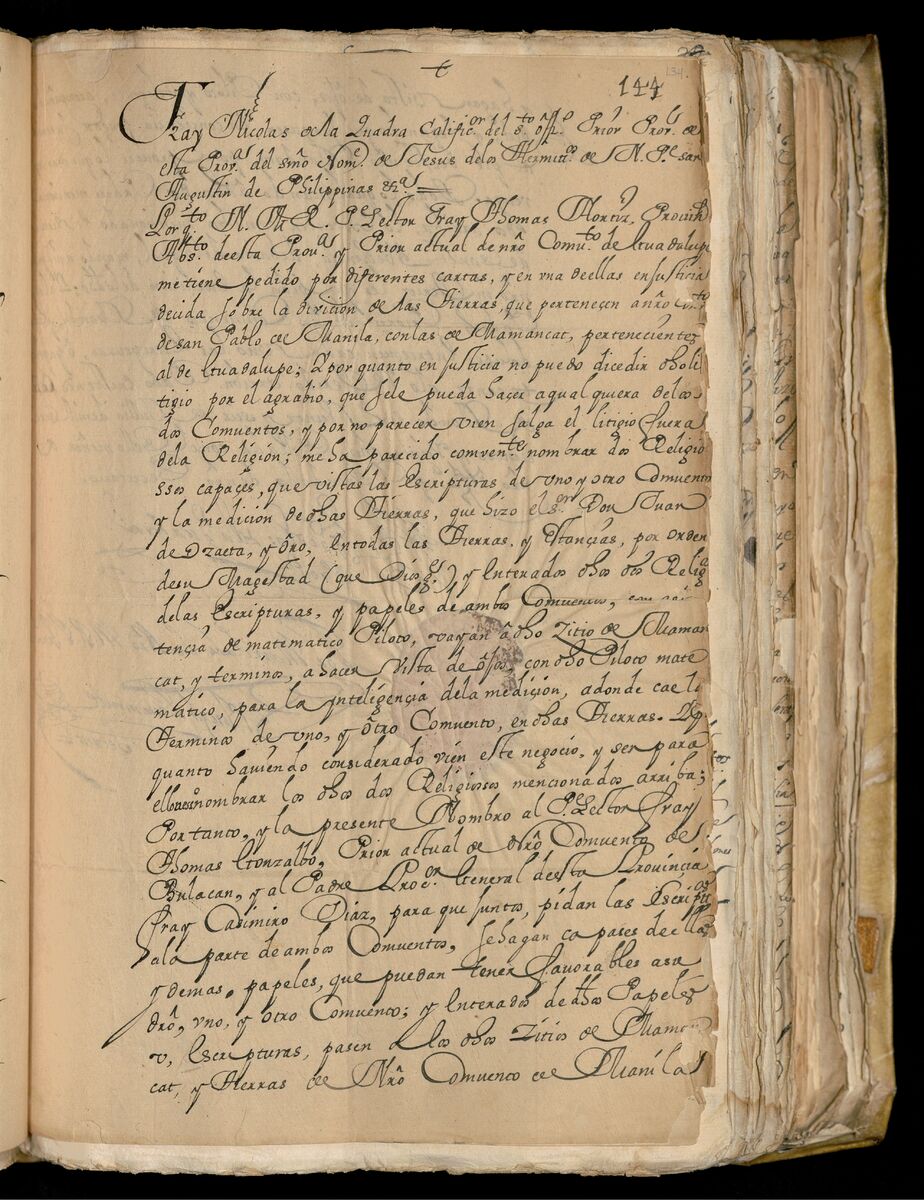 144
134
Fray Nicolas de la Quadra Calific.or del s.to offi.o Prior Prov.l de
esta Prov.a del smo Nom.e de Jesus delos Hermita.s de N. P.e san
Augustin de Philippinas &.a
Por q.to N. M. R. P.e Lector Fray Thomas Hortiz, Provin.l
Abs.to de esta Prov.a y Prior actual de nro Comu.to de Guadalupe
me tiene pedido por diferentes cartas, y en vna de ellas en justicia
decida sobre la divicion de las Tierras, que perteneçen a nro
de san Pablo de Manila, con las de Mamancat, pertenecientes
al de Guadalupe; Y por quanto en justicia no puedo dicedir dho li
tigio por el agrabio, que sele pueda haçer a qual quiera delos
dos Comuentos, y por no parecer vien salga el litigio fuera
dela Religion; me ha parecido comven.te nombrar dos Religio
ssos capaçes, que vistas las Escripturas de vno y otro Comuento
y la medicion de dhas Tierras, que hizo el s.or Don Juan
de Ozaeta, y Oro, en todas las Tierras, y Estançias, por orden
de su Magestad (que Dios g.e) y Enterados dhos dos Relig
delas Escripturas, y papeles de ambos Comuentos, con asis
tençia de matematico Piloto, vayan â dho Zitio de Maman
cat, y terminos, a hacer vista de ojos, con dho Piloto mate
mático, para la ynteligençia dela medicion, a donde cae l
Terminos de vno, y Otro Comuento, en dhas Tierras. Y p
quanto haviendo considerado vien este negocio, y ser para
ello nombrar los dhos dos Religiosos mencionados arriba;
Por tanto, y la presente Nombro al P.e Lector Fray
Thomas Gonzalbo, Prior actual de Nro Comuento de
Bulacan, y al Padre Proc.or General desta Provincia
Fray Casimiro Diaz, para que juntos, pidan las Escript
a la parte de ambos Comuentos, se hagan capases de ellas
y demas papeles, que puedan tener favorables a su
dro, vno, y otro Comuento; y Enterados de dhos Papeles
v, Escripturas, pasen a los dhos Zitios de Maman
cat, y Tierras de Nro Comuento de Manila